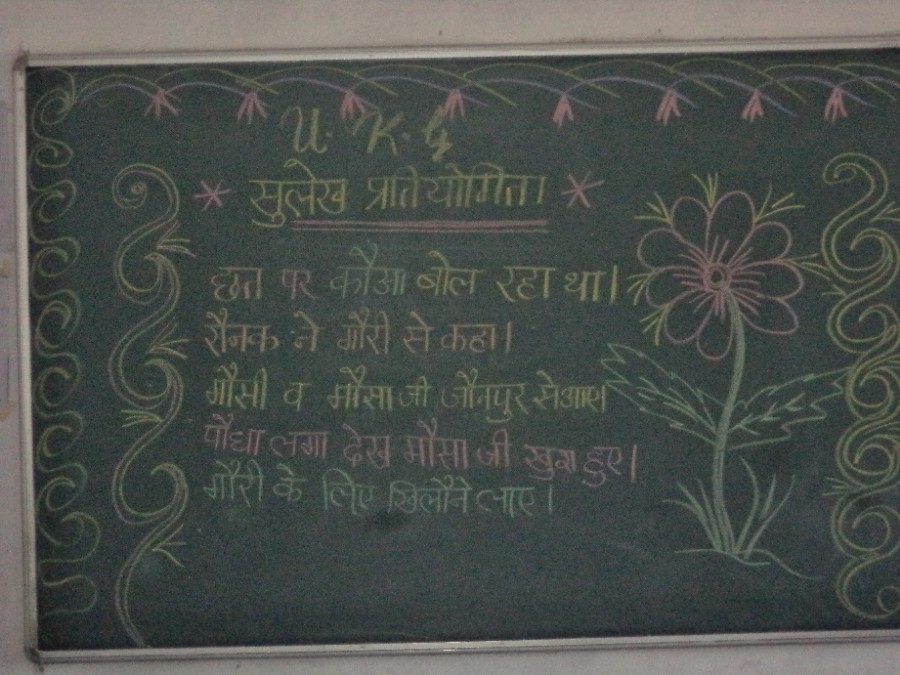 U. K. G
सुलेख प्रतियोगिता
छत पर कौआ बोल रहा था।
रौनक ने गौरी से कहा।
मौसी व मौसा जी जौनपुर से आए।
पौधा लगा देख मौसा जी खुश हुए।
गौरी के लिए खिलौने लाए।